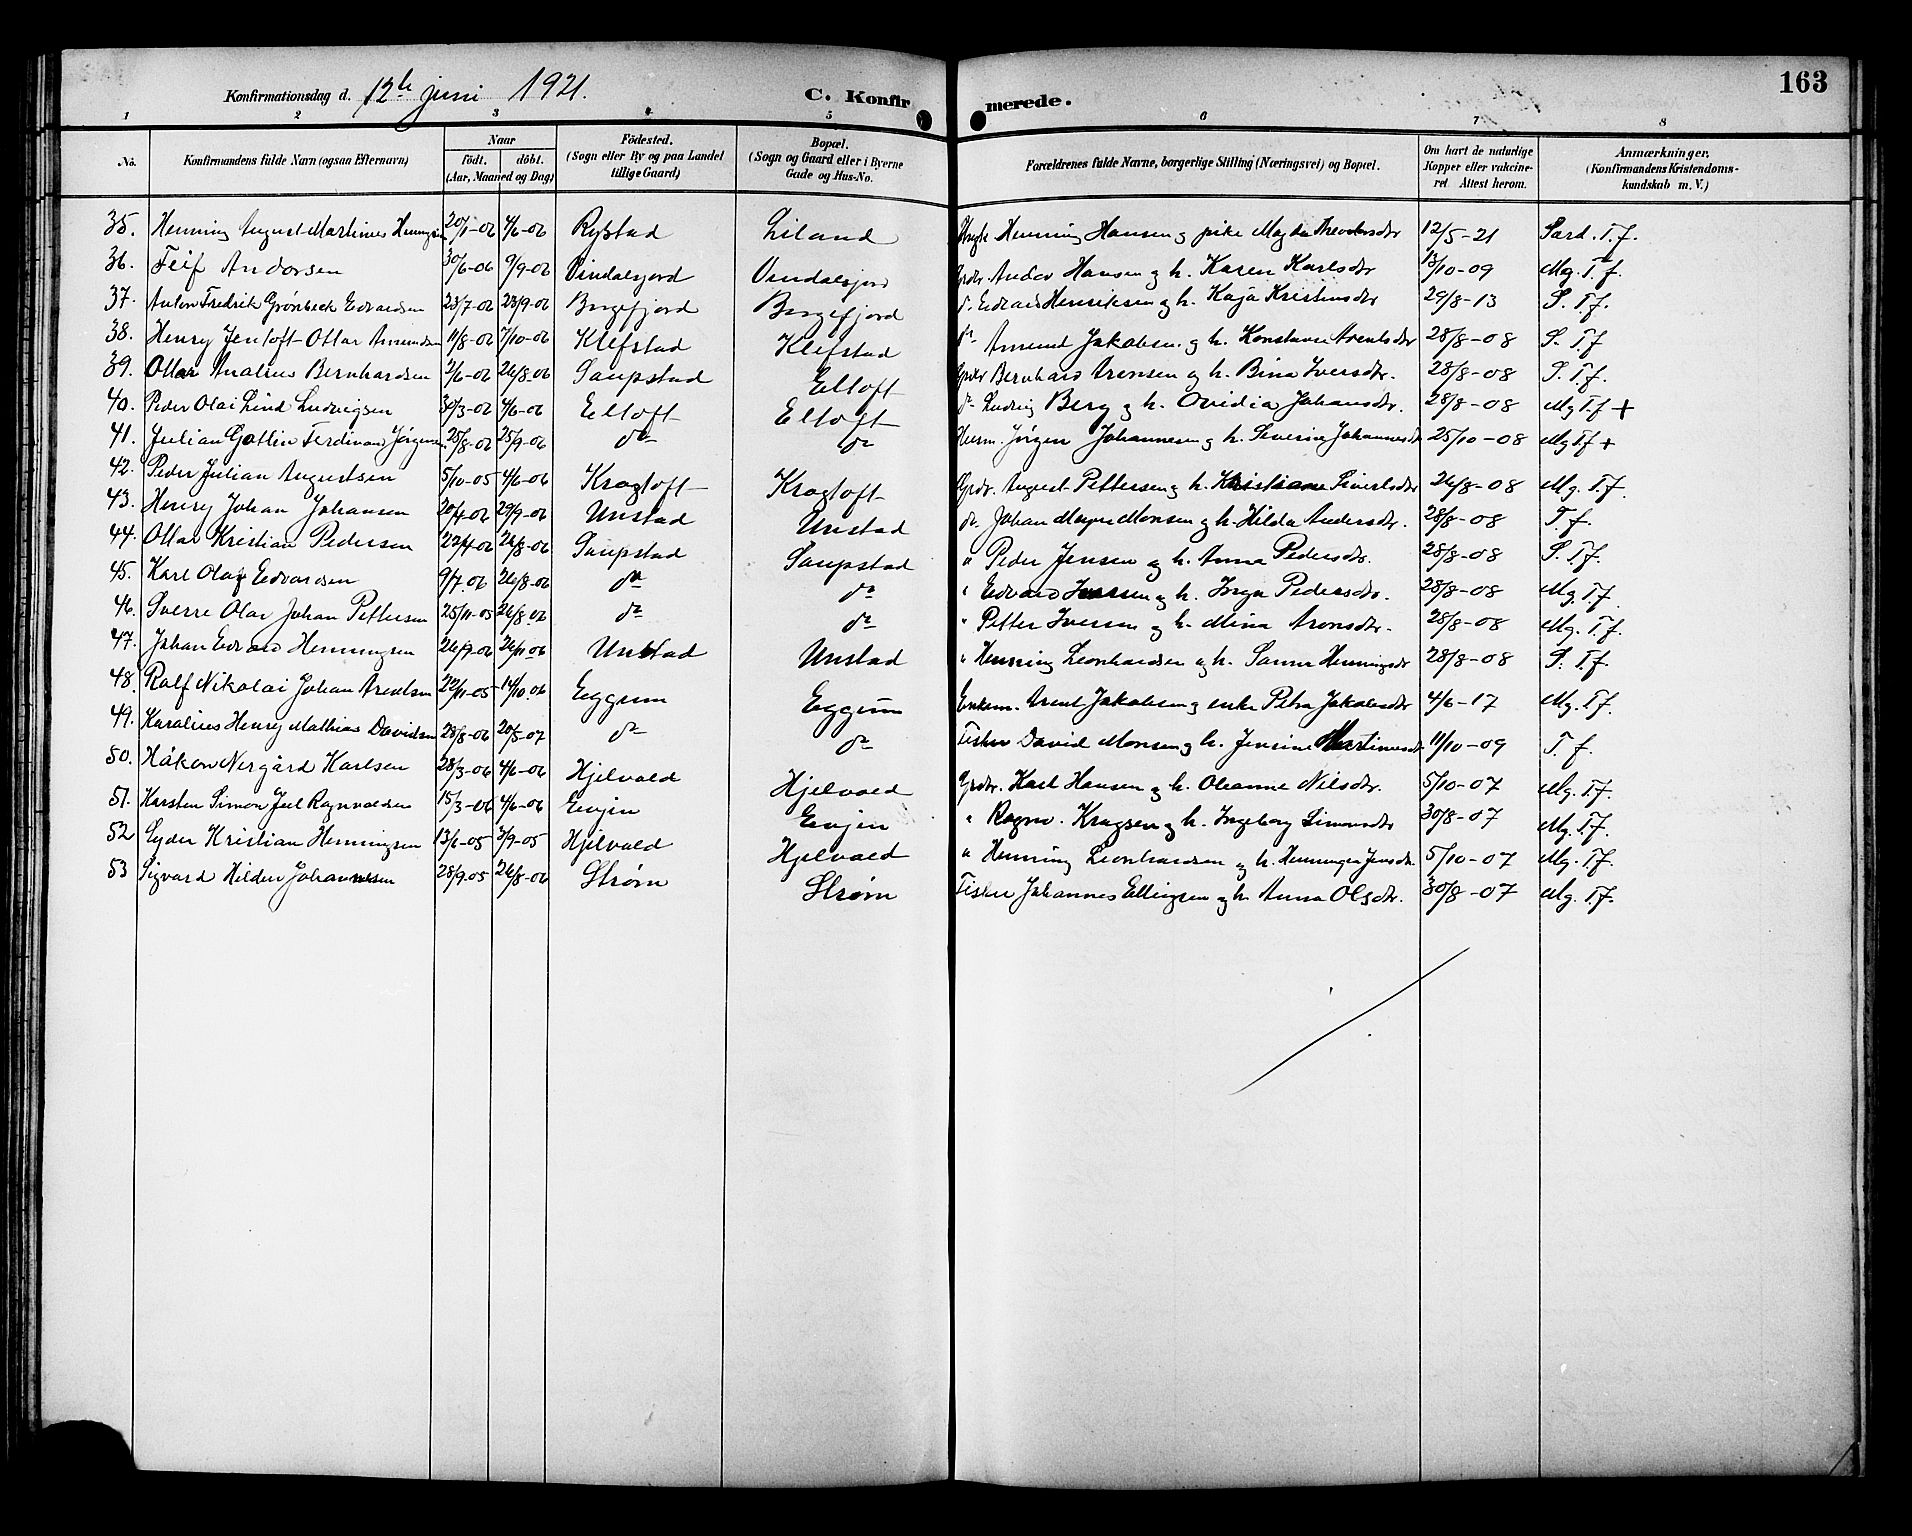 163
Konfirmationsdag d. 12te juni 1921. C. Konfirmerede.
1 2 3 4 5 6 7 8
No. Konfirmandens fulde Navn (ogsaa Efternavn) Naar födt. döbt. (Aar, Maaned og Dag) Födested. (Sogn eller By og paa Landet tillige Gaard) Bopæl. (Sogn og Gaard eller i Byerne Gade og Hus-No. Forældrenes fulde Navne, borgerlige Stilling (Næringsvei) og Bopæl. Om havt de naturlige Kopper eller vakcineret Attest herom. Anmærkninger. (Konfirmandens Kristendomskundskab m. V.)
35. Henning August Martines Henningsen 20/1-06 4/6-06 Rystad Liland Henning Hansen og pike Magda 12/5-21 Særd. T.f.
36. Feif Andorsen 30/6-06 9/9-06 Vindalsfjord Vendalsfjord Grdbr. Andor Hansen og h. Karen Karlsdtr 13/10-09 Mg. T.f.
37. Anton Fredrik Grønbeck Edvardsen 23/7-06 23/9-06 Borgefjord Borgefjord do Edvard Henriksen og h. Kaja Kristensdtr 29/8-13 S. T.f.
38. Henry Jentoft Ottar Amundsen 11/8-06 7/10-06 Klefstad Klefstad do Amund Jakobsen og h. Konstanse Arentsdtr 28/8-08 S. T.f
39. Ottar Analius Bernhardsen 2/6-06 26/8-06 Saupstad Eltoft Grdbr Bernhard Aronsen og h. Bina Iversdtr. 28/8-08 S. T.f.
40. Peder Olai Lind Ludvigsen 30/3-06 4/6-06 Eltoft Eltoft do Ludvig Berg og h. Ovidia Johansdtr. 28/8-08 Mg T.f +
41. Julian Gottlin Ferdinand Jörgensen 25/8-06 25/9-06 do do Husm. Jörgen Johannesen og h. Severine Johannesdtr 25/10-08 Mg T.f +
42. Peder Julian Augustsen 5/10-05 4/6-06 Kragtoft Kragtoft Grdbr. August Pettersen og h. Kristiane Sivertsdtr 26/8-08 Mg. T.f.
43. Henry Johan Johansen 20/4-06 29/9-06 Unstad Unstad do Johan Meyer Monsen og h. Hilda Andersdtr. 28/8-08 T f.
44. Ottar Kristian Pedersen 22/4-06 26/8-06 Saupstad Saupstad " Peder Jensen og h. Anna Pedersdtr. 28/8-08 S. T.f.
45. Karl Olaf Edvardsen 9/7.06 26/8-06 do do " Edvard Iversen og h. Inga Pedersdtr. 28/8-08 Mg. T.f
46. Sverre Olav Johan Pettersen 25/11-05 26/8-06 do do " Petter Iversen og h. Mina Aronsdtr. 28/8-08 Mg. T.f.
47. Johan Edvard Henningsen 26/9-06 26/11-06 Unstad Unstad " Henning Leonhardsen og h. Sanna Henningsdtr 28/8-08 S. T.f.
48. Rolf Nikolai Johan Arentsen 22/11-05 14/10.06 Eggum Eggum Enkem. Arent Jakobsen og enke Petra Jakobsdtr 4/6-17 Mg. T.f.
49. Karolius Henry Mathias Davidsen 28/8-06 20/5-07 do do Fisker David Monsen og h. Jensine Martinusdtr. 11/10-09 T. f.
50. Håkon Nergård Karlsen 28/3-06 4/6-06 Hjelvold Hjelvold Grdbr. Karl Hansen og h. Oleanne Nilsdtr. 5/10-07 Mg. T.f.
51. Karsten Simon Juel Ragnvaldsen 15/3-06 4/6-06 Evjen Evjen " Ragnv. Kragsen og h. Ingeborg Simonsdtr 30/8-07 Mg. T.f.
52 Lyder Kristian Henningsen 13/6-05 3/9-05 Hjelvold Hjelvold " Henning Leonhardsen og h. Henninga Jensdtr. 5/10-07 Mg. T.f.
53 Sigvard Hilden Johannesen 28/9.05 26/8-06 Strøm Strøm Fisker Johannes Ellingsen og h. Anna Olsdtr. 30/8-07 Mg. T.f.